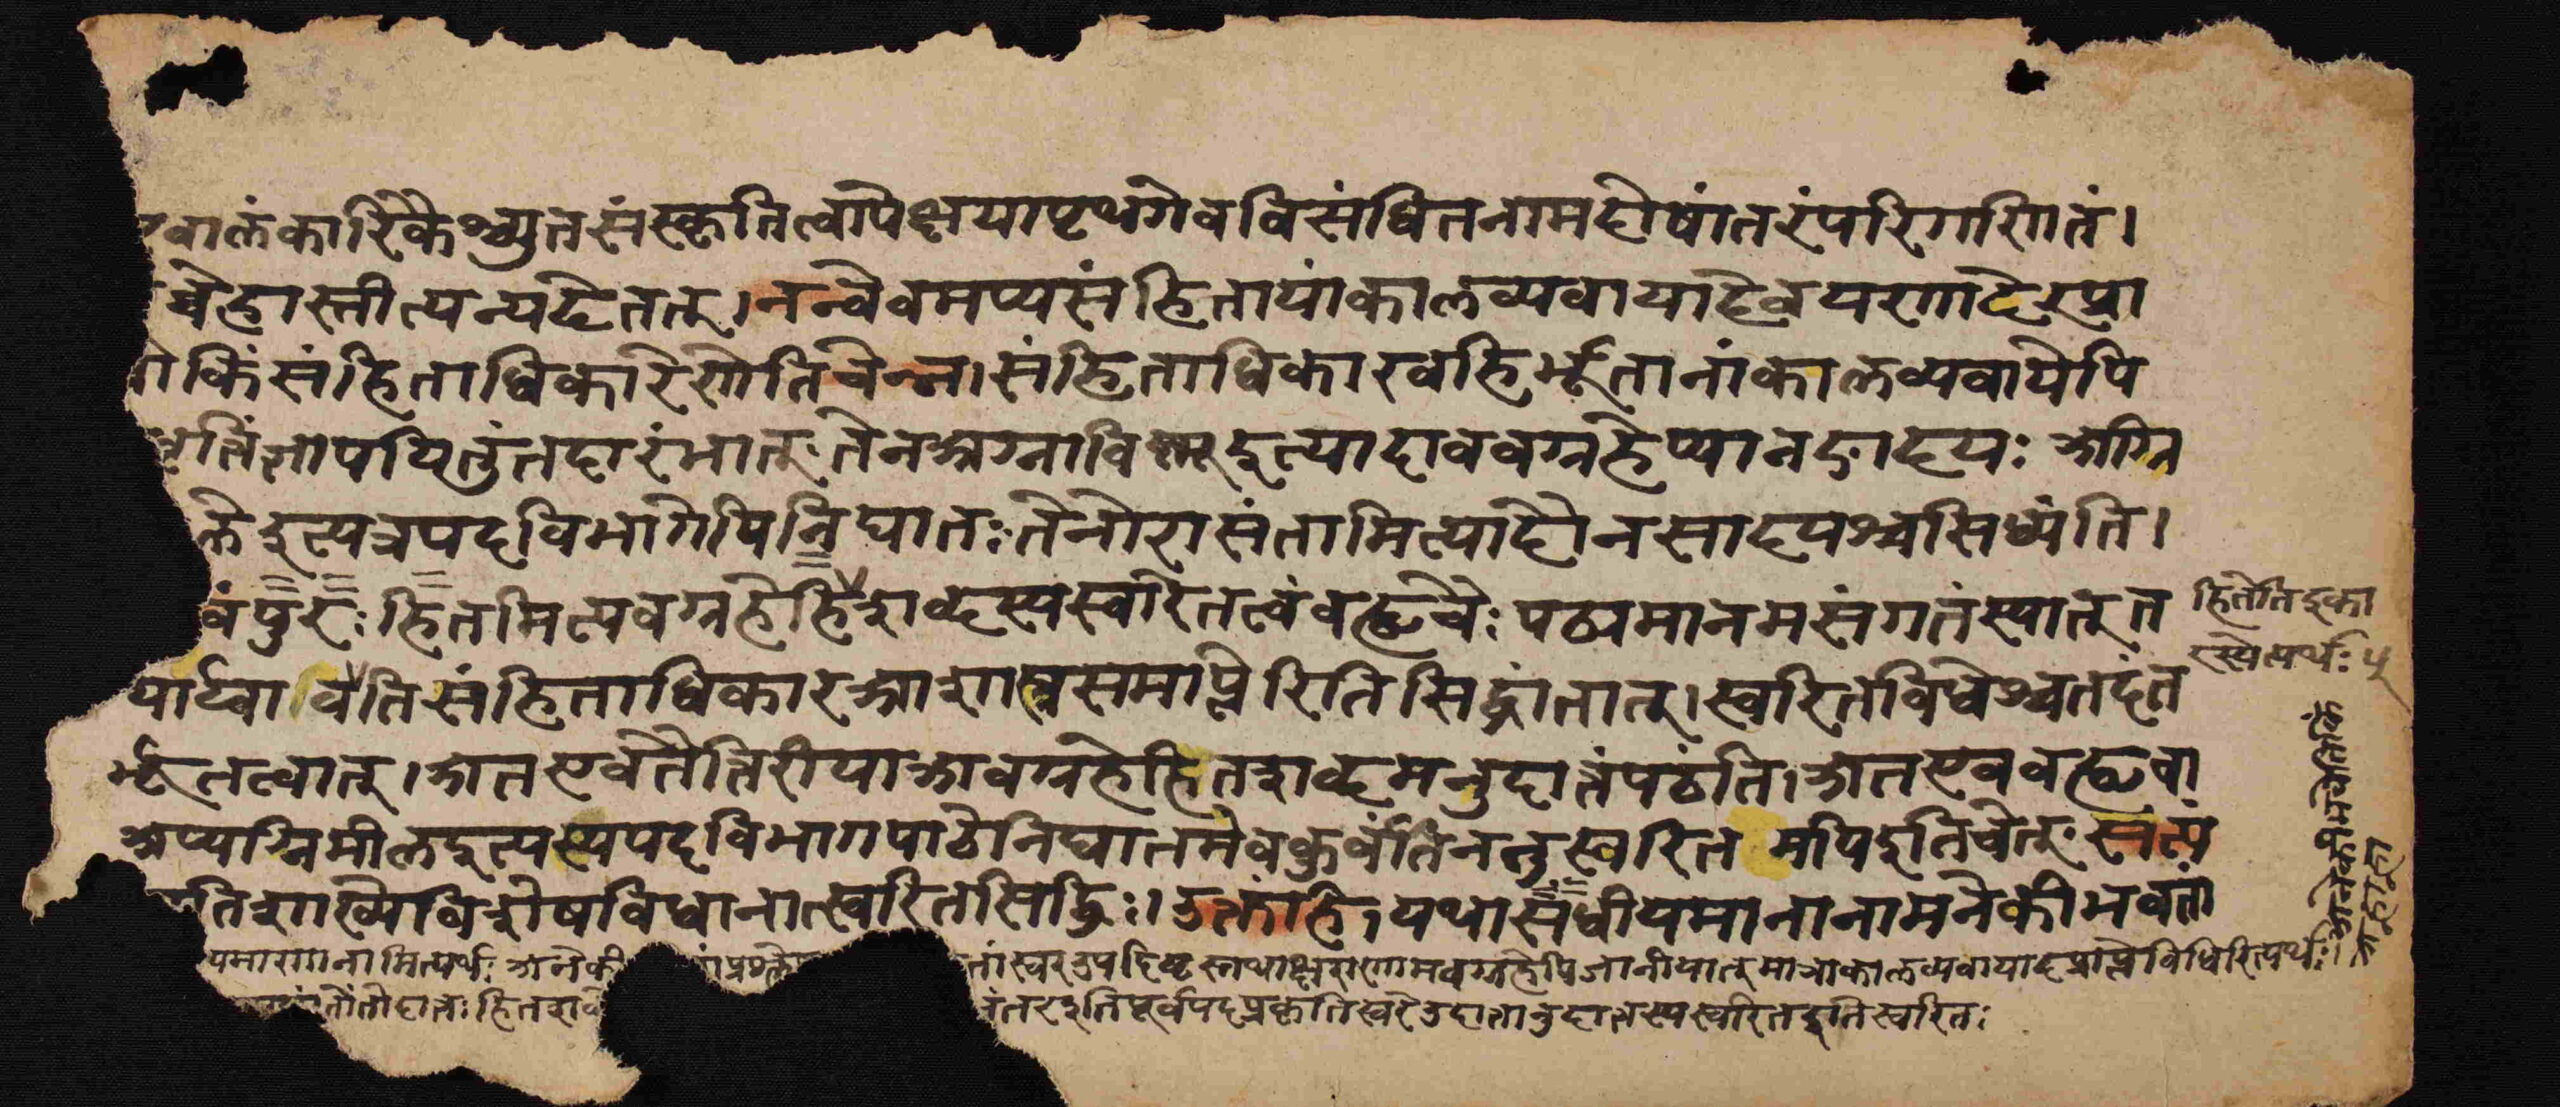 वालंकारिकैश्च्युतसंस्कृतित्वापेक्षयापृथगेवविसंधितनामदोषांतरंपरिगणितं।
चेहास्तीत्यन्यदेतत्।नन्वेवमप्यसंहितायांकालव्यवायादेवयरणादेरप्रा
किंसंहिताधिकारेणेतिचेन्न।संहिताधिकारबहिर्भूतानांकालव्यवायेपि
ज्ञापयितुंतदारंभात्तेनअग्नाविष्णूइत्यादाववग्रहेप्यानङादयः अग्नि
लेइत्यत्रपदविभागेपिनिघातःतेनोरासंतामित्यादौनसादयश्चसिध्यंति।
वंपुरःहितमित्यवग्रहेहिशब्दस्यस्वरितत्वंबह्वृचैःपठ्यमानमसंगतंस्यात्त
हितेतिइका
रस्येत्यर्थः
पार्द्वावेतिसंहिताधिकारआशास्त्रसमाप्तेरितिसिद्धांतात्।स्वरितविधेश्चतदंत
र्भूतत्वात्।अतएवतैत्तिरीयाअवग्रहेहितशब्दमनुदात्तंपठंति।अतएवबह्वृचा
अप्यग्निमीलइत्यस्यपदविभागपाठेनिघातमेवकुर्वंतिनतुस्वरितमपिइतिचेत्सत्यं
तिशाख्येविशेषविधानात्स्वरितसिद्धिः।उक्तंहि।यथासंधीयमानानामनेकीभवतां
यमाणानामित्यर्थः अनेकी प्रश्ले तांस्वरउपदिष्टस्तथाक्षराणामवग्रहेपिजानीयात्मात्राकालव्यवायादप्राप्तेविधिरित्यर्थः।
तोदात्तः हितशब्दे इतिपूर्वपदप्रकृतिस्वरेउदात्तानुदात्तस्यस्वरितइतिस्वरितः